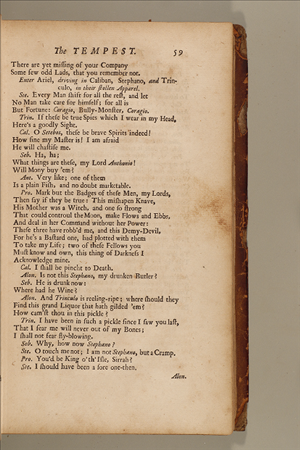 The TEMPEST. 59
There are yet missing of your Company
Some few odd Lads, that you remember not.
Enter Ariel, driving in Caliban, Stephano, and Trin-
culo, in their stollen Apparel.
Ste. Every Man shift for all the rest, and let
No Man take care for himself; for all is
But Fortune: Coragio, Bully-Monster, Coragio.
Trin. If these be true Spies which I wear in my Head,
Here's a goodly Sight.
Cal. O Setebos, these be brave Spirits indeed!
How fine my Master is! I am afraid
He will chastise me.
Seb. Ha, ha;
What things are these, my Lord Anthonio!
Will Mony buy 'em?
Ant. Very like; one of them
Is a plain Fish, and no doubt marketable.
Pro. Mark but the Badges of these Men, my Lords,
Then say if they be true: This mishapen Knave,
His Mother was a Witch, and one so strong
That could controul the Moon, make Flows and Ebbs,
And deal in her Command without her Power:
These three have robb'd me, and this Demy-Devil,
For he's a Bastard one, had plotted with them
To take my Life; two of these Fellows you
Must know and own, this thing of Darkness I
Acknowledge mine.
Cal. I shall be pincht to Death.
Alon. Is not this Stephano, my drunken Butler?
Seb. He is drunk now:
Where had he Wine?
Alon. And Trinculo is reeling-ripe; where should they
Find this grand Liquor that hath gilded 'em?
How cam'st thou in this pickle?
Trin. I have been in such a pickle since I saw you last,
That I fear me will never out of my Bones;
I shall not fear fly-blowing.
Seb. Why, how now Stephano?
Ste. O touch me not; I am not Stephano, but a Cramp.
Pro. You'd be King o'th' Isle, Sirrah?
Ste. I should have been a sore one then.
Alon.